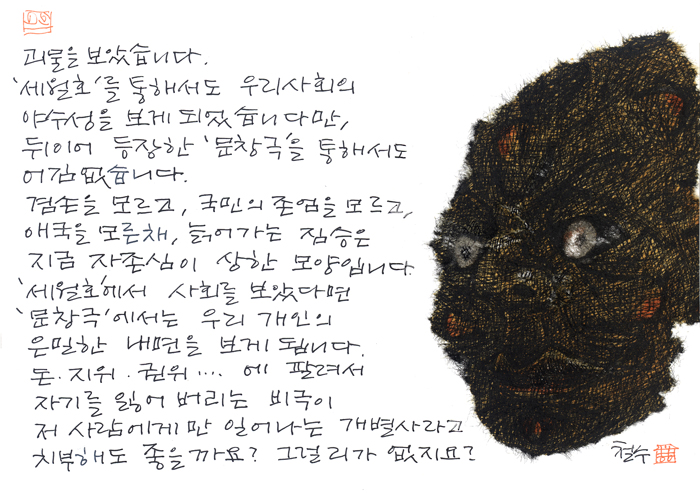 괴물을 보았습니다.
'세월호'를 통해서도 우리사회의
야수성을 보게 되었습니다만,
뒤이어 등장한 '문창극'을 통해서도
어김없습니다.
겸손을 모르고, 국민의 존엄을 모르고,
애국을 모른채, 늙어가는 짐승은
지금 자존심이 상한 모양입니다.
'세월호'에서 사회를 보았다면
'문창극'에서는 우리 개인의
은밀한 내면을 보게 됩니다.
돈·지위·권위.... 에 팔려서
자기를 잃어 버리는 비극이
저 사람에게만 일어나는 개별사라고
치부해도 좋을까요? 그럴리가 없지요?
철수